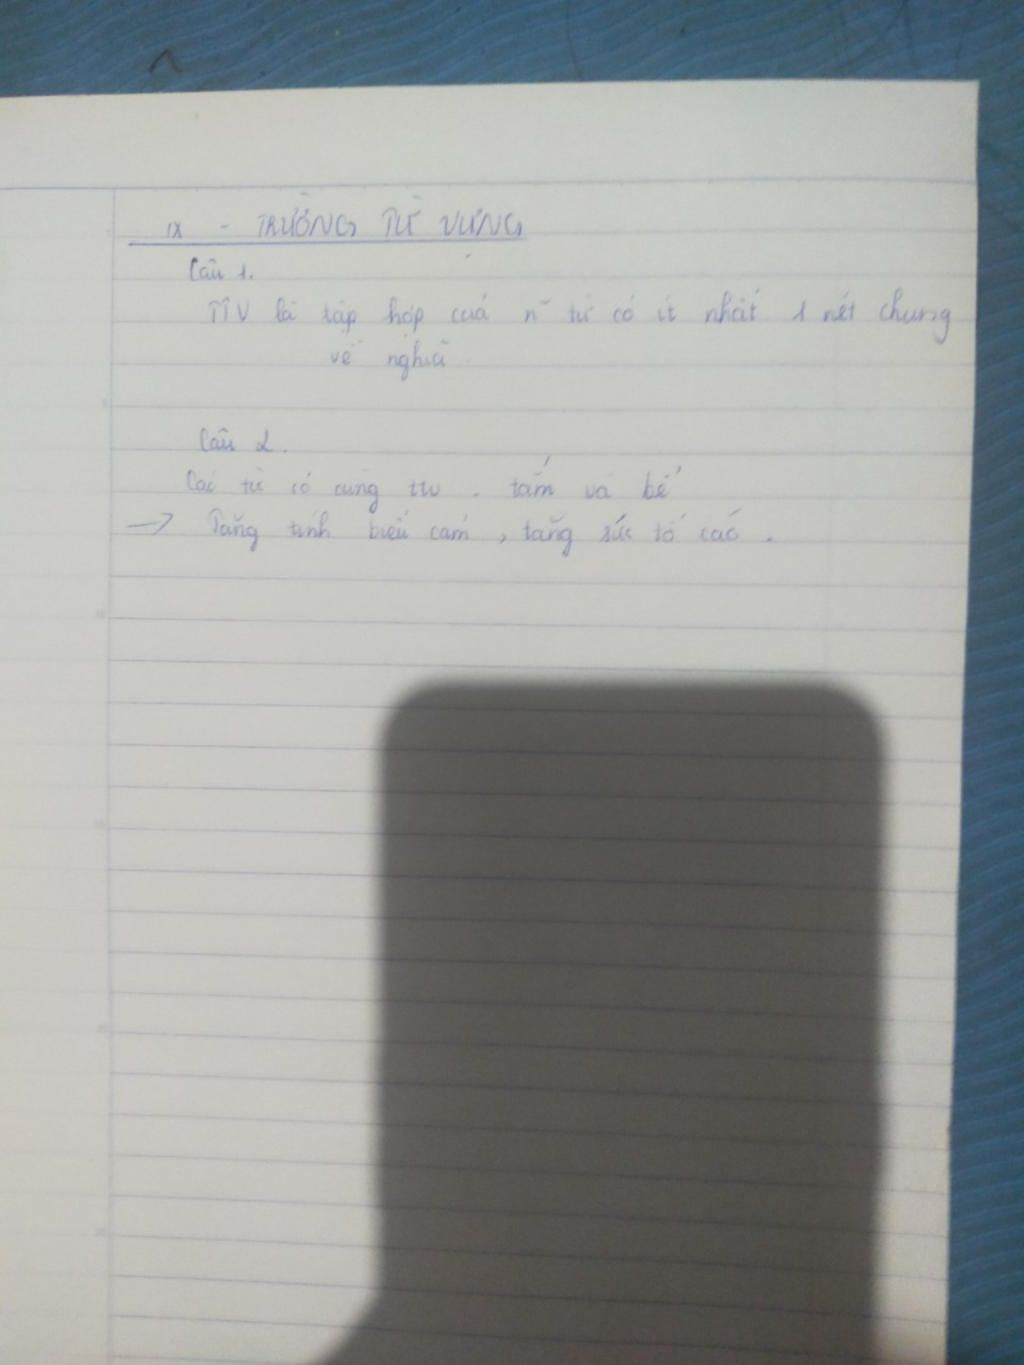 IX - TRƯỜNG TỪ VỰNG
Câu 1.
TTV là tập hợp của n~ từ có ít nhất 1 nét chung
về nghĩa.
Câu 2.
Các từ có cùng ttv. tắm và bể
→ Tăng tính biểu cảm, tăng sức tố cáo.